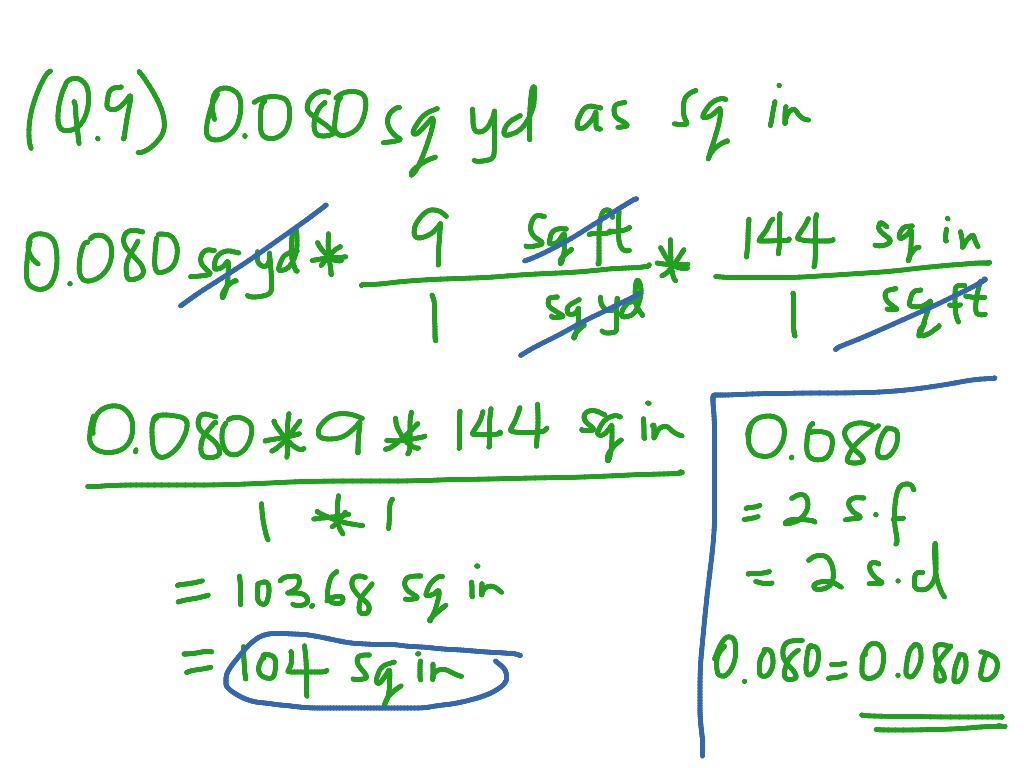 (Q.9) 0.080 sq yd as sq in
0.080 sq yd * 9 sq ft / 1 sq yd * 144 sq in / 1 sq ft
0.080 * 9 * 144 sq in
1 * 1
= 103.68 sq in
= 104 sq in
0.080
= 2 s.f
= 2 s.d
0.080 = 0.0800